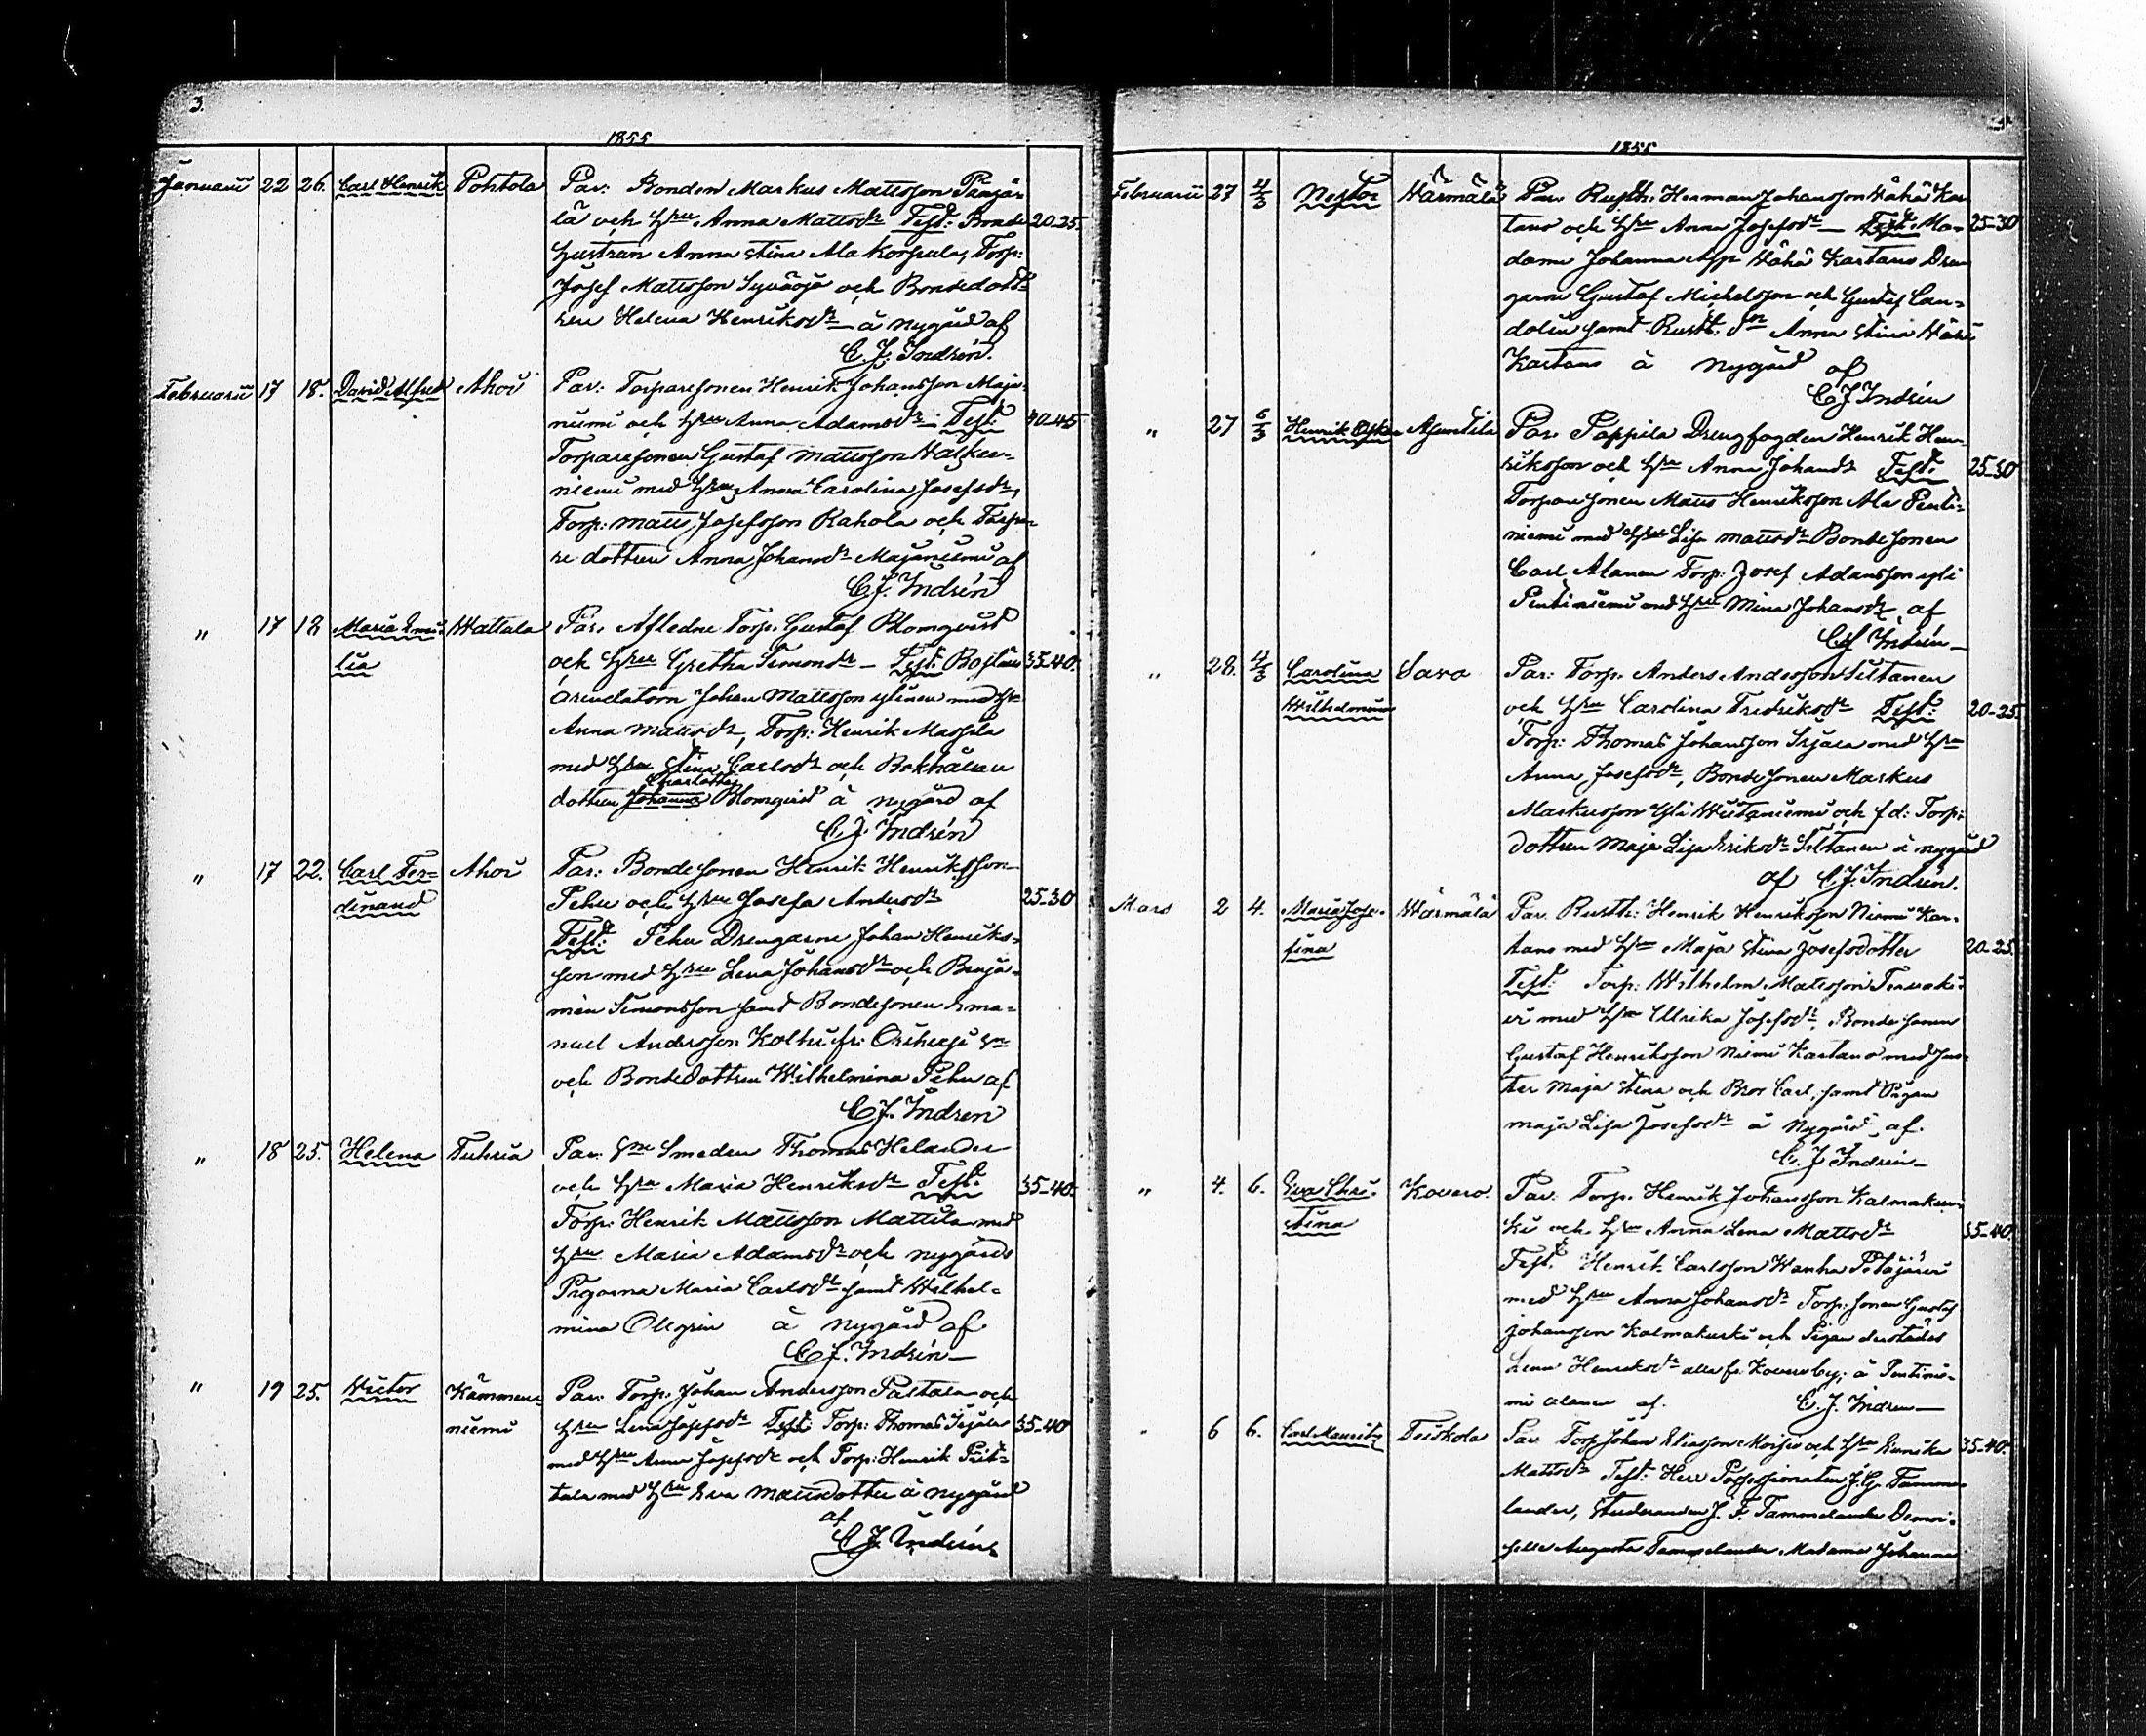 3.
1855
Januarii 22 26. Carl Henrik Pohtola Par: Bonden Markus Mattsson Pärjä-
lä och Hru Anna Mattsdr Test: Bonde 20-25.
hustrun Anna Stina Ala Korpula, Torp:
Josef Mattsson Syväoja och Bondedott-
ren Helena Henriksdr à nygård af
C. J. Indrén.
Februarii 17 18. David Alfred Ahoi Par: Torparesonen Henrik Johansson Maja-
niemi och Hru Anna Adamsdr Test: 40-45
Torparesonen Gustaf Mattsson
niemi med Hru Anna Carolina Josefsdr,
Torp: Matts Josefsson Rahola och Torpa-
re dottren Anna Johansdr Majaniemi af
C. J. Indrén
" 17 18 Maria Emi- Wattula Par: Afledne Torp: Gustaf Blomqvist
lia och Hru Gretha Simonsdr - Test: 35-40.
Arendatorn Johan Mattsson med Hru
Anna Mattsdr, Torp: Henrik Massila
med Hru Stina Carlsdr och
Charlotta
dottren Johanna Blomqvist à nygård af
C. J. Indrén
" 17 22. Carl Fer- Ahoi Par: Bonde sonen Henrik Henriksson
dinand Pehu och Hru Josefa Andersdr 25-30
Test: Pehu Drengarne Johan Henriks-
son med Hru Lena Johansdr och Benja-
min Simonsson samt Bondesonen Ema-
nuel Andersson Koltu fr: Orihesi Sn
och Bondedottren Wilhelmina Pehu af
C. J. Indren
" 18 25. Helena Tuhria Par: Sne Smeden Thomas Helander
och Hru Maria Henriksdr Test: 35-40.
Torp: Henrik Mattsson Mattila med
Hru Maria Adamsdr och nygårds
Pigorna Maria Carlsdr samt Wilhel-
mina Ollgrin à nygård af
C. J. Indrén
" 19 25. Victor Kämmen- Par: Torp: Johan Andersson Paltala och
niemi Hru Lena Josefsdr Test: Torp: Thomas 35-40
med Hru Anna Josefsdr och Torp: Henrik
tala med Hru Eva Mattsdotter à nygård
af
C. J. Indrén
1855
Februarii 27 4/3 Nestor Wärmälä Par: Rusth: Herman Johansson Wähä Kar-
tano och Hru Anna Josefsdr - Test: Ma- 25-30
dame Johanna Wähä Kartano Dren-
garne Gustaf Michelsson och Gustaf Can-
dolin samt Rusth: Anna Stina Wähä
Kartano à nygård af
C J Indrén
" 27 6/3 Henrik Oskar Asuntila Par: Pappila Drengfogden Henrik Hen-
riksson och Hru Anna Johansdr Test: 25-30
Torpare sonen Matts Henriksson Ala Penti-
niemi med Hru Lisa Mattsdr Bonde sonen
Carl Alanen Torp: Josef Adamsson yli
Pentiniemi med Hru Mina Johansdr, af
C J Indrén
" 28. 4/3 Carolina Savo Par: Torp: Anders Andersson Siltanen
Wilhelmina och Hru Carolina Fredriksdr Test: 20-25.
Torp: Thomas Johansson med Hru
Anna Josefsdr, Bonde sonen Markus
Markusson yli och f.d: Torp:
dottren Maja Lisa Eriksdr Siltanen à nygård
af C. J. Indrén.
Mars 2 4. Maria Jose- Wärmälä Par. Rusth: Henrik Henriksson Niemi Kar-
fina tano med Hru Maja Stina Josefsdotter 20-25.
Test: Torp: Wilhelm Mattsson
med Hru Ullrika Josefsdr, Bonde sonen
Gustaf Henriksson Niemi Kartano med sys-
ter Maja Stina och Bror Carl, samt Pigan
Maja Lisa Josefsdr à Nygård af.
C. J Indrén
" 4. 6. Eva Chri- Kovero. Par: Torp: Henrik Johansson Kalmakur-
stina ki och Hru Anna Lena Mattsdr 35-40.
Test. Henrik Carlsson Wanha Petäjärvi
med Hru Anna Johansdr Torp: sonen Gustaf
Johansson Kalmakurki och Pigan derstädes
Lena Henriksdr alla fr. Kovero by; à Pentinie-
mi Alanen af. C. J. Indren
" 6 6. Carl Mauritz Teiskola Par Torp: Johan Eliasson Moisio och Hru 35-40.
Mattsdr Test: Herr Possessionaten J. G. Tamme-
lander, Studeranden J. F. Tammelander Demoi-
selle Augusta Tammelander, Madame Johanna